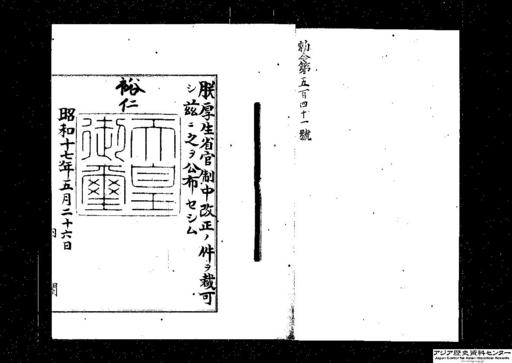 勅令第五百四十一號
朕厚生省官制中改正ノ件ヲ裁可
シ茲ニ之ヲ公布セシム
裕仁
天皇
御璽
昭和十七年五月二十六日
内
閣
アジア歴史資料センター
Japan Center for Asian Historical Records